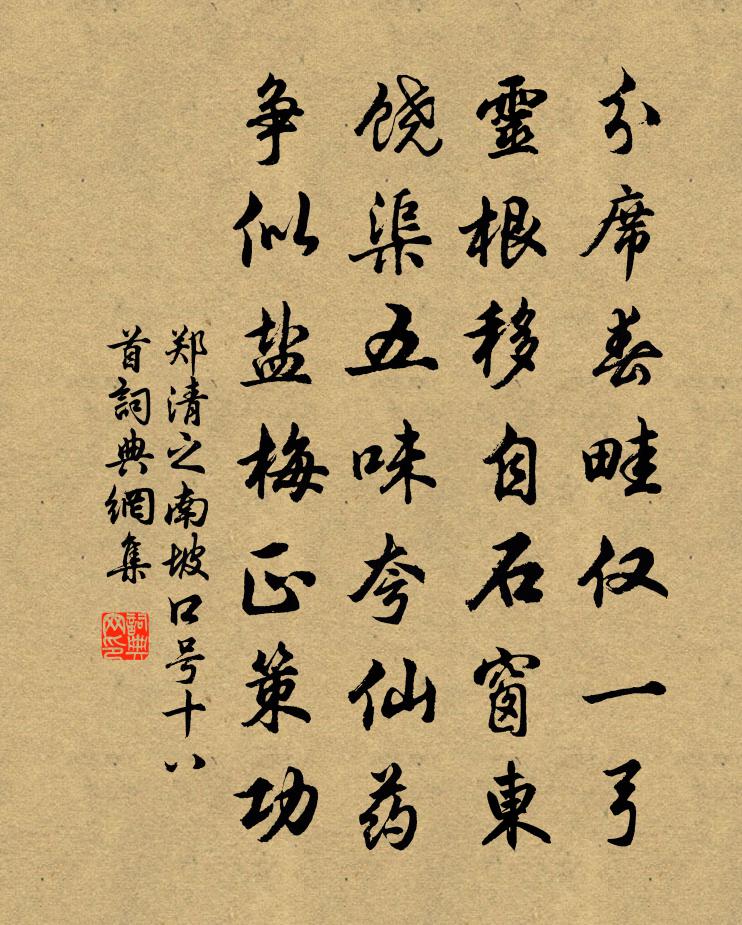 分席春畦仅一弓
靈根移自石窗東
饶渠五味夸仙药
争似盐梅正策功
郑清之南坡口号十八
首詞典網集
詞典网印